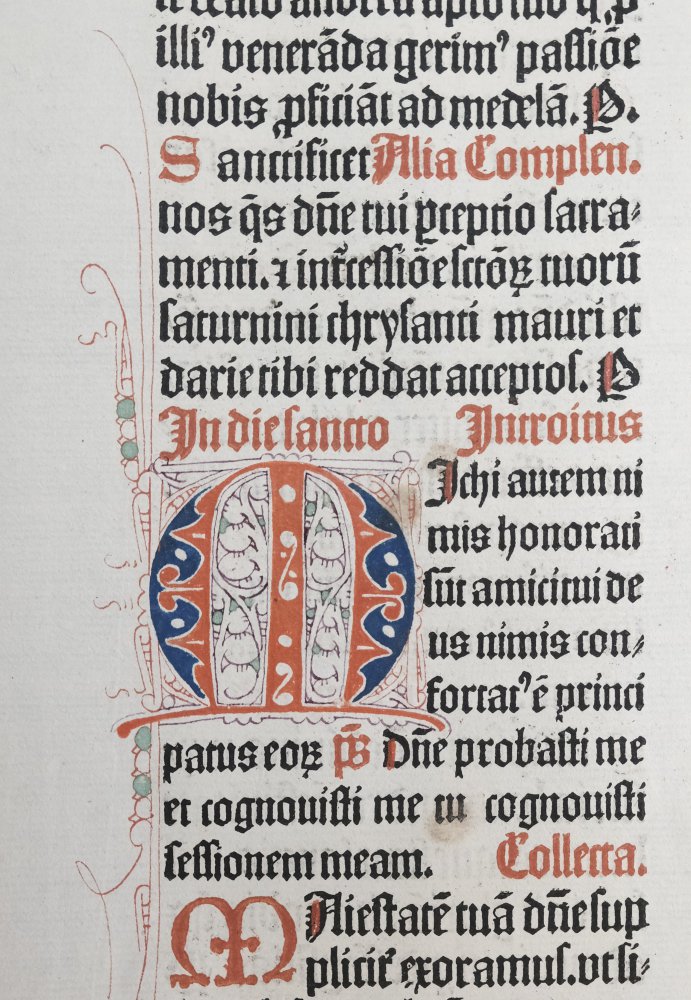 illiꝰ venerāda gerimꝰ passiōe
nobis ꝓficiāt ad medelā. P.
Sanctificet Alia Complen.
nos q̄s dn̄e tui ꝑceptio sacra⸗
menti. ⁊ int̄cessiōe sctōꝝ tuorū
saturnini chrysanti mauri et
darie tibi reddat acceptos. P
In die sancto Introitus
MIchi autem ni
mis honorati
sūt amici tui de
us nimis con⸗
fortatꝰ ē princi
patus eoꝝ p̄s Dn̄e probasti me
et cognouisti me tu cognouisti
sessionem meam. Collecta.
MAiestatē tuā dn̄e sup
plicit̄ exoramus. vt si⸗